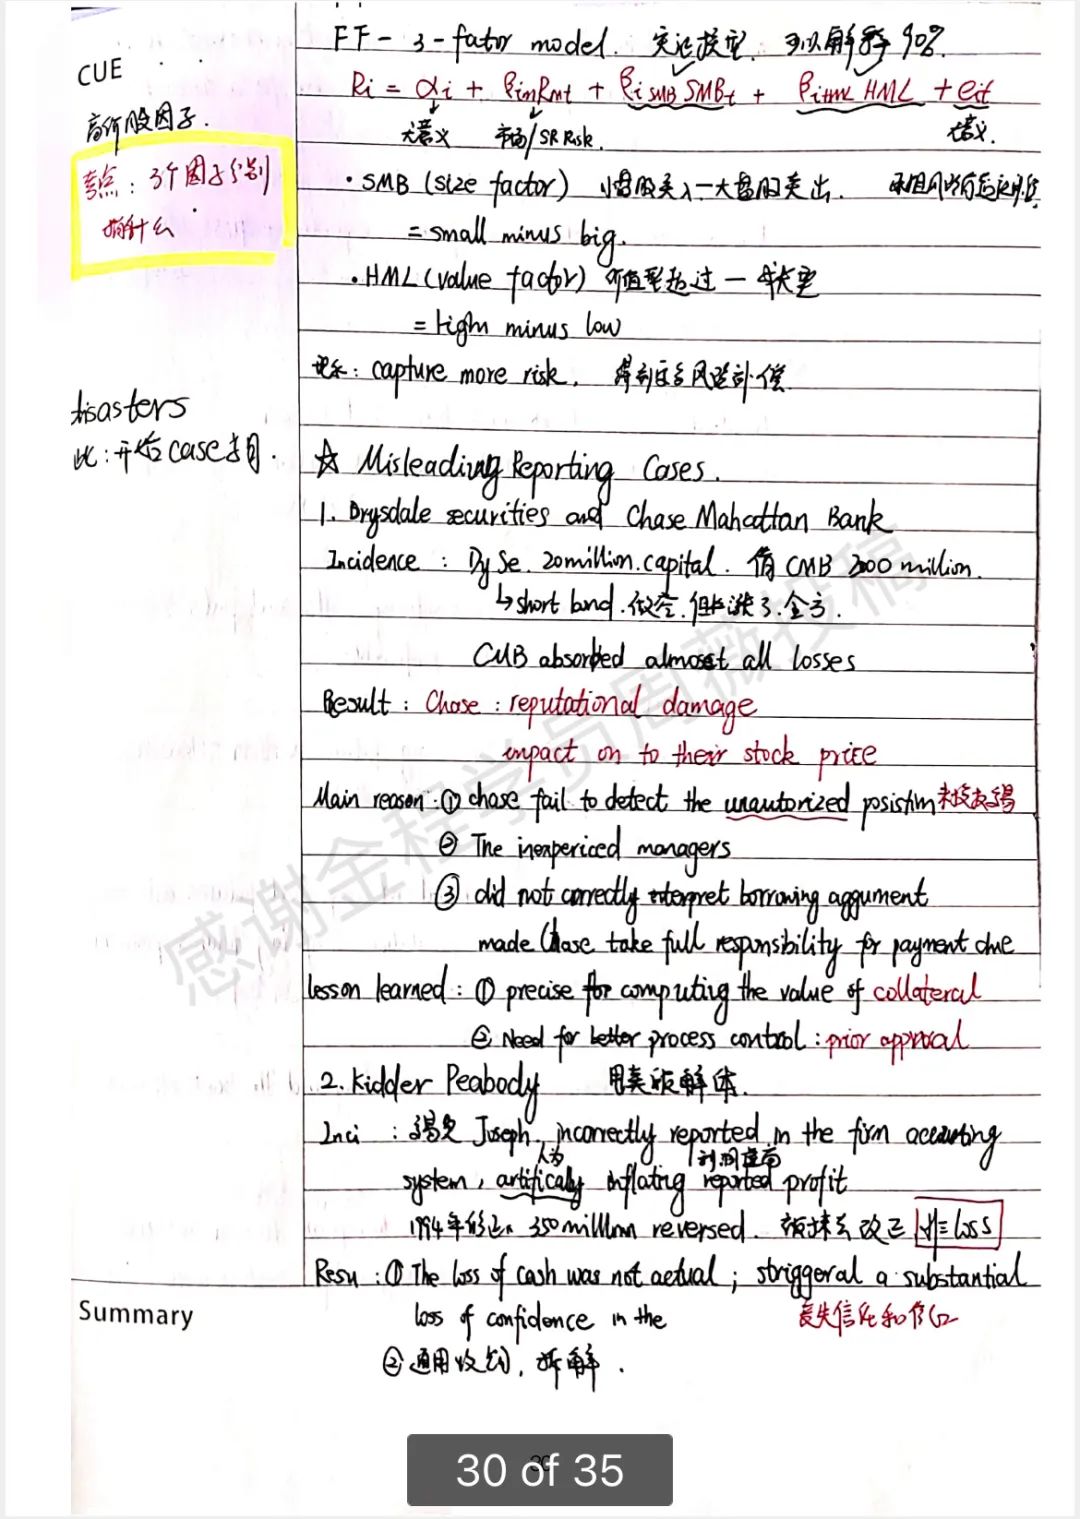 CUE
高阶股因子.
考点: 3个因子分别
指什么
disasters
此:开始case专用.
FF-3-fator model. 实证模型. 可以解释90%.
Ri = αi + βimRmt + βiSMB SMBt + βiHML HML + eit
无意义 市场/SR Risk. 无意义.
· SMB (size factor) 小盘股买入一大盘股卖出.
= small minus big.
· HML (value factor) 价值型超过一成长型
= High minus low
capture more risk. 得到更多风险补偿.
☆ Misleading Reporting Cases.
1. Drysdale securities and Chase Mahattan Bank
Incidence : Dy Se. 20million.capital. 借 CMB 300 million.
↳ short bond. 做空. 但上涨了.全亏.
CMB absorbed almost all losses
Result : Chase : reputational damage
impact on to their stock price
Main reason : ① chase fail to detect the unautorized posistim 未授权交易
② The inexpericed managers
③ did not correctly interpret borrowing aggument
made Chase take full responsibility for payment due
lesson learned : ① precise for computing the value of collateral
② Need for better process control : prior approval
2. Kidder Peabody 用卖被解体.
Inci : 交易员 Joseph, incorrectly reported in the firm accounting
人为 利润虚高
system, artifically inflating reported profit
1994年修正 350 million reversed. 改正 loss
Resu : ① The loss of cash was not actual ; striggeral a substantial
loss of confidence in the 丧失信任和信心
② 通用收购, 拆解.
Summary
感谢金程学员周薇投稿
30 of 35